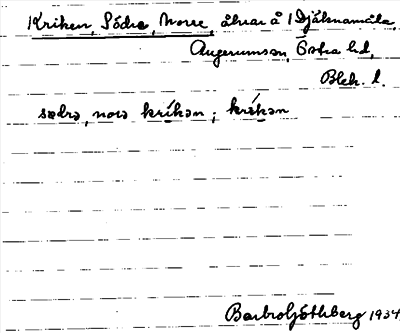 Kriken, Södra, Norre, åkrar å 1 Djälsnamåla,
Augerumssn, Östra hd,
Blek. l.
sødrə, norə krikən ; krikən
Barbro Göthberg 1934